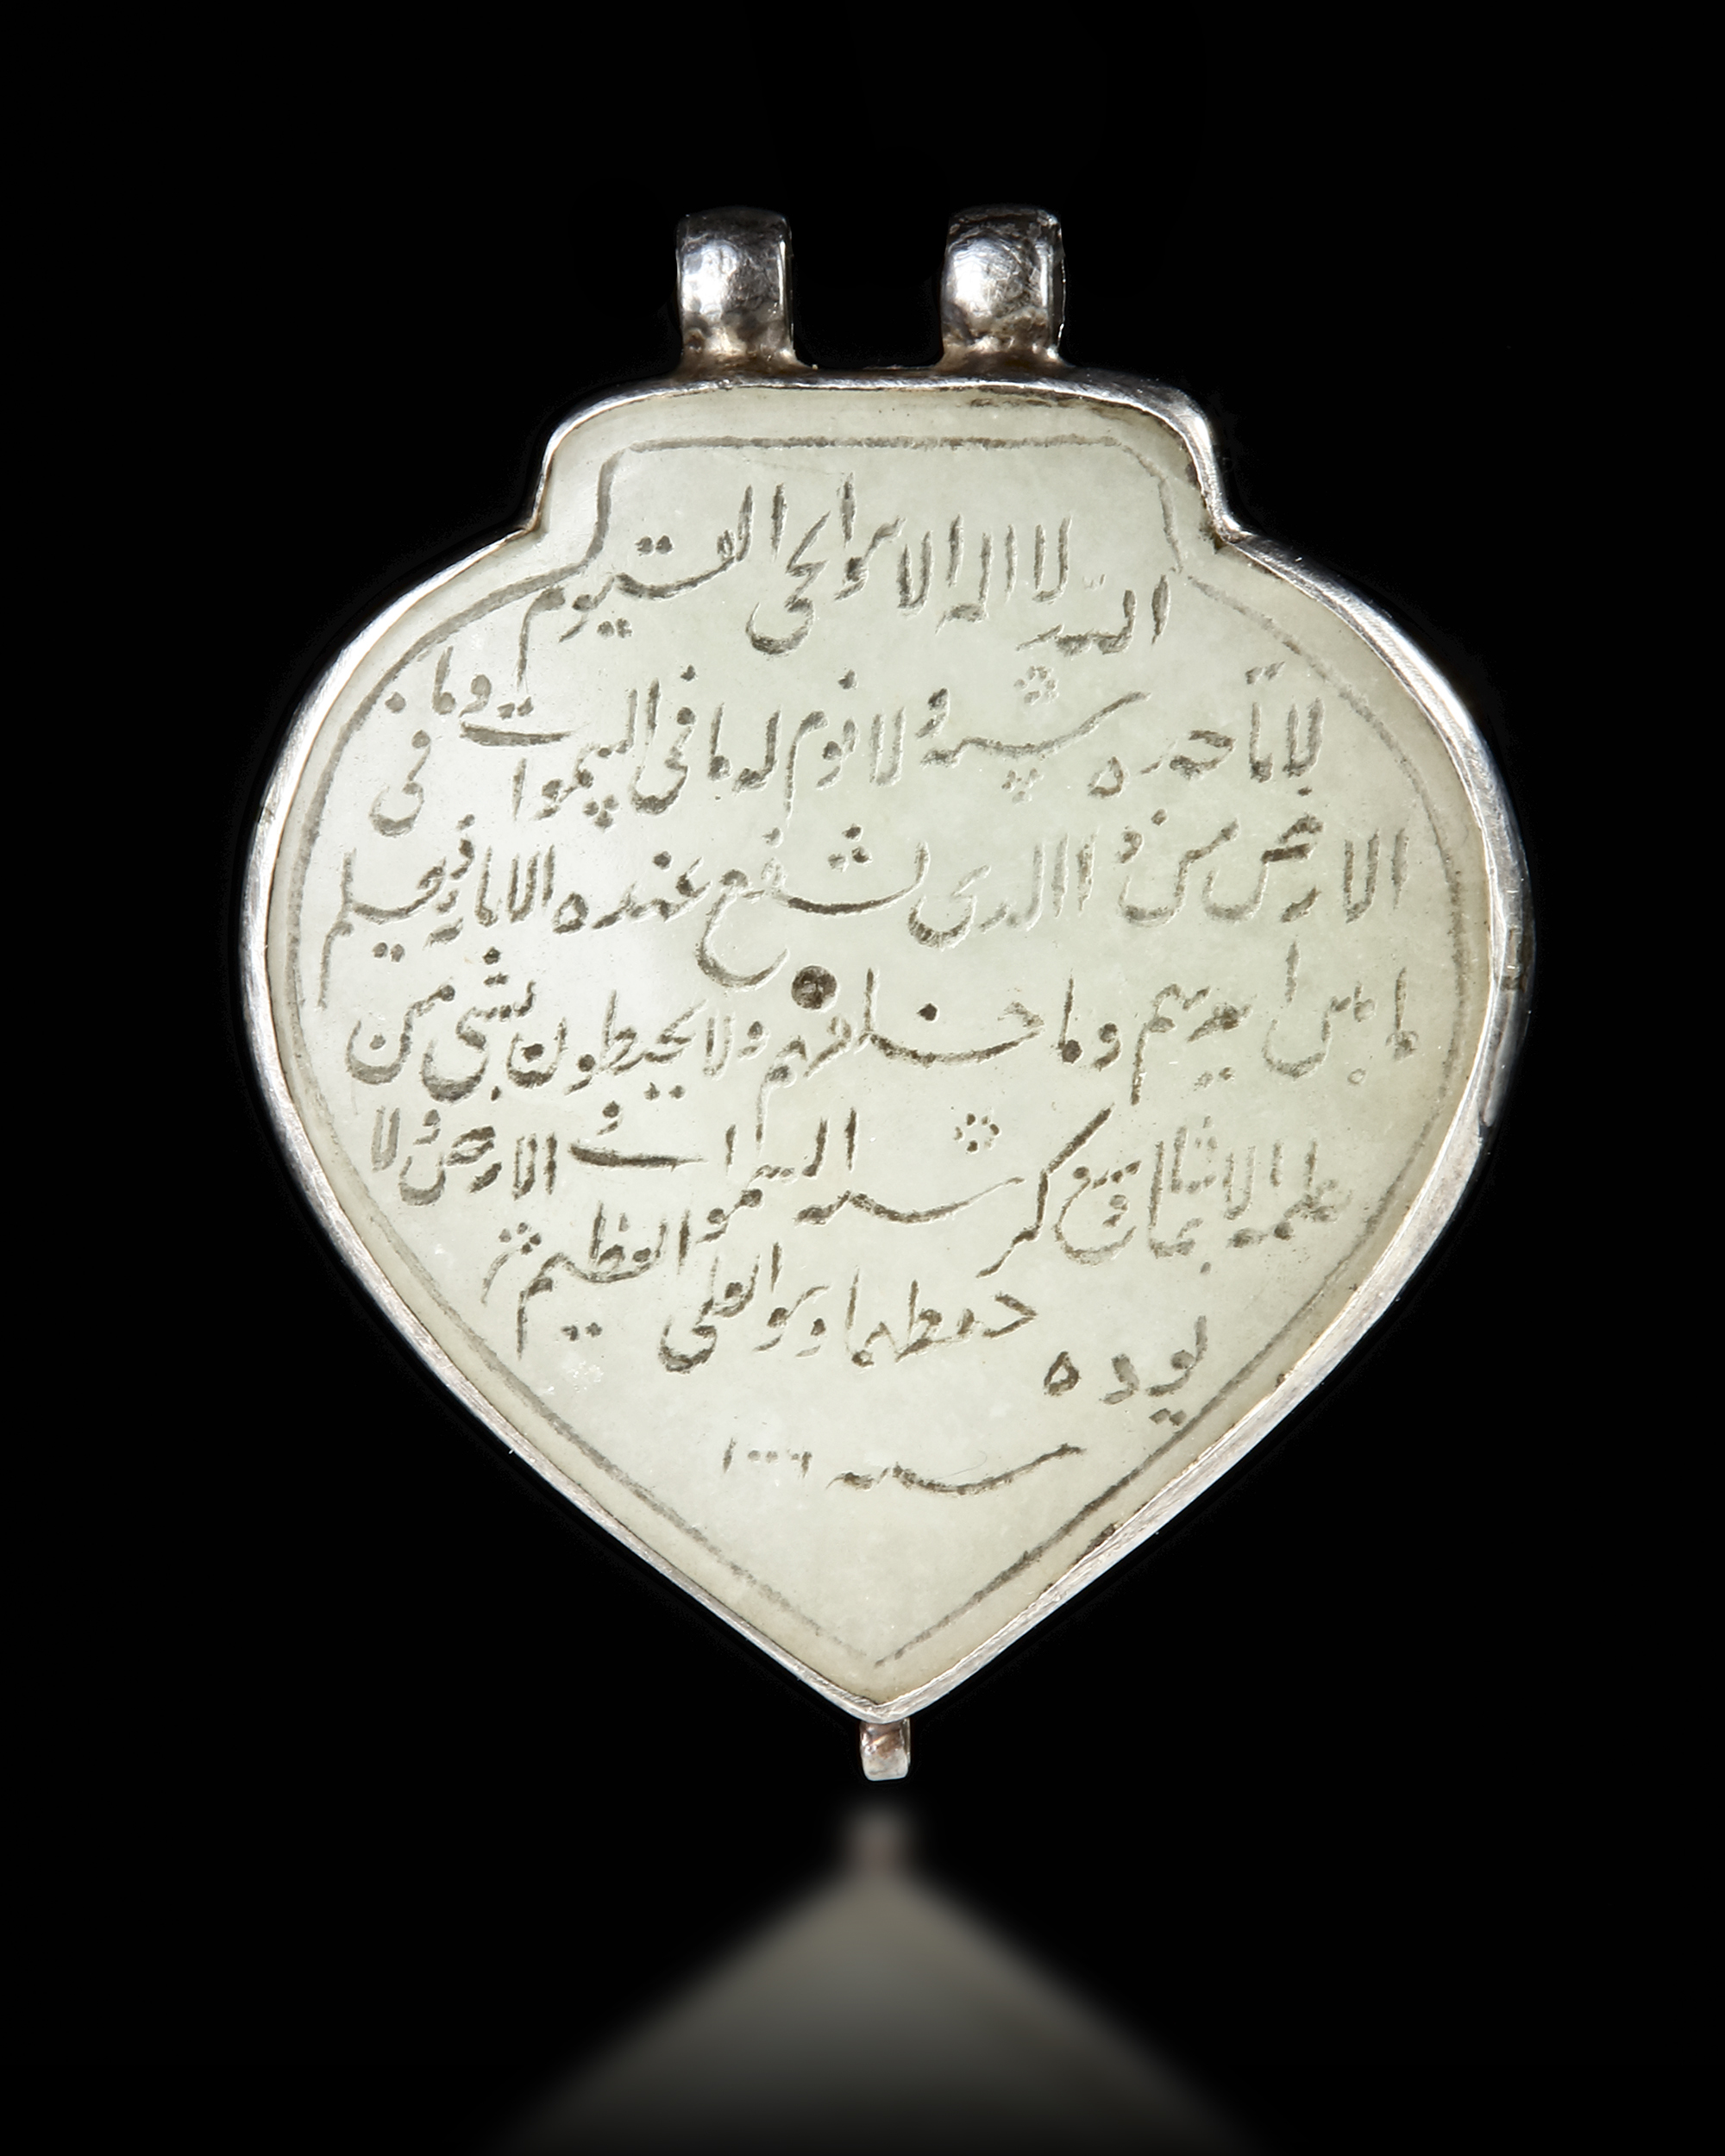 الله لا اله الا هو الحی القیوم
لا تاخذه سنة و لا نوم له ما فی السموات وما فی
الارض من ذا الذی یشفع عنده الا باذنه یعلم
ما بین ایدیهم وما خلفهم ولا یحیطون بشی من
علمه الا بما شا وسع کرسیه السموات و الارض و لا
یوده حفظهما وهو العلی العظیم
سنه